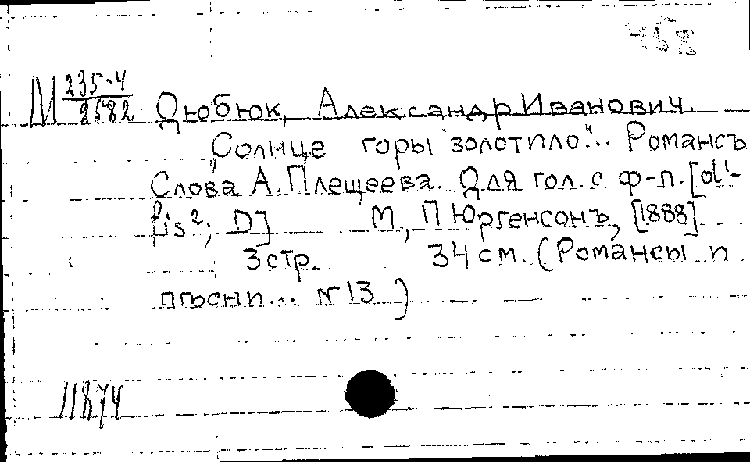 М 235-4
2582
Дюбюк, Александр Иванович.
„Солнце горы золотило"... Романсъ
Слова А. Плещеева. Для гол. с ф-п. [d¹-
fis²; D] М., П Юргенсонъ, [1888]
3 стр. 34 см. (Романсы и
пѣсни... № 13 )
11874